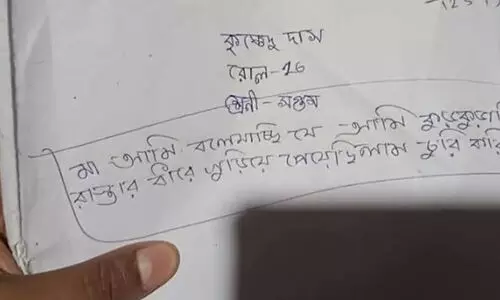 কৃষ্ণেন্দু দাস
রোল-26
শ্রেনী- সপ্তম
মা আমি বলেযাচ্ছি যে আমি কুড়কুড়া
রাস্তার ধীরে কুড়িয়ে পেয়েছিলাম চুরি করি